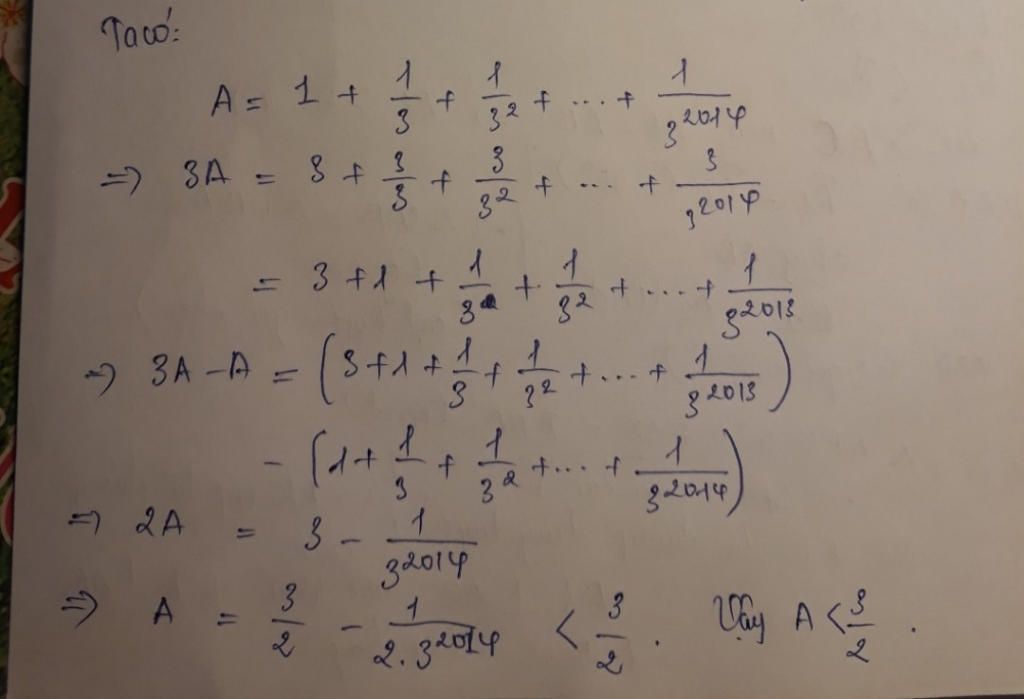 Ta có:
A = 1 + 1/3 + 1/3² + ... + 1/3²⁰¹⁴
=> 3A = 3 + 3/3 + 3/3² + ... + 3/3²⁰¹⁴
= 3 + 1 + 1/3 + 1/3² + ... + 1/3²⁰¹³
=> 3A - A = (3 + 1 + 1/3 + 1/3² + ... + 1/3²⁰¹³)
- (1 + 1/3 + 1/3² + ... + 1/3²⁰¹⁴)
=> 2A = 3 - 1/3²⁰¹⁴
=> A = 3/2 - 1/(2.3²⁰¹⁴) < 3/2 . Vậy A < 3/2 .